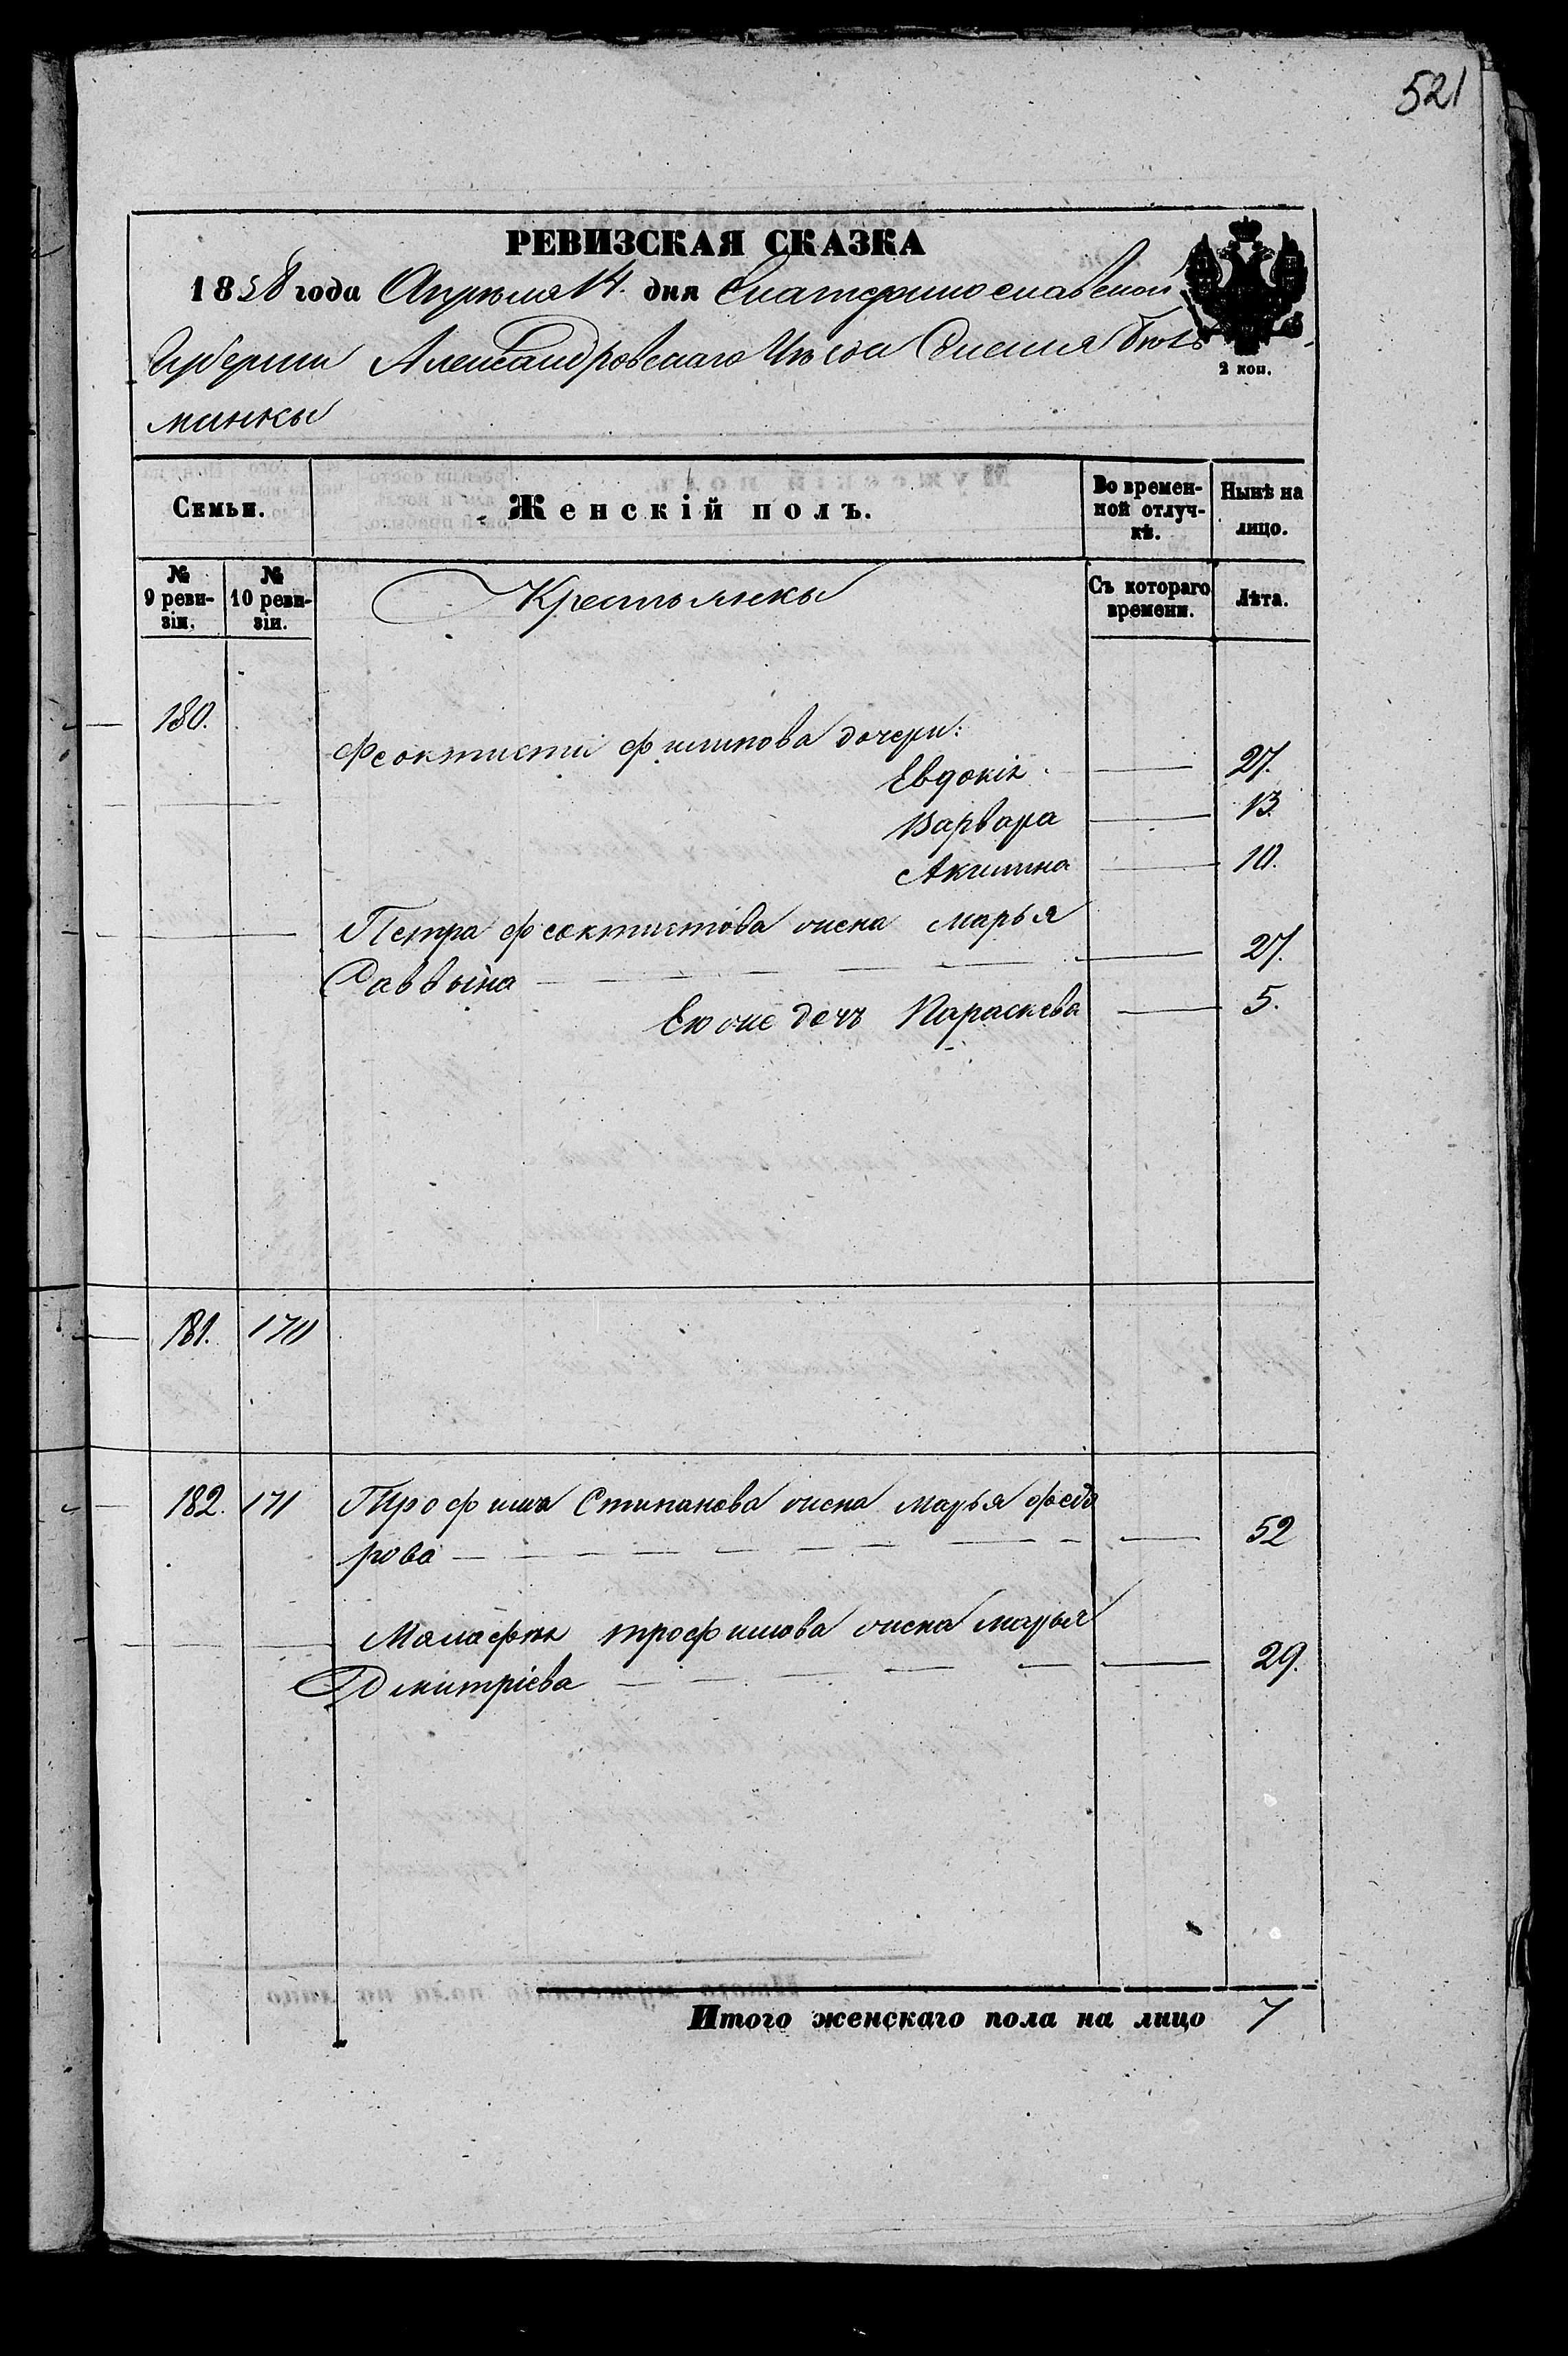 521
РЕВИЗСКАЯ СКАЗКА
1858 года Апреля 14. дня Екатеринославской
Губернии Александровскаго Уезда Селения
2 коп.
минки
Семьи.
Женскій полъ.
Во времен-
ной отлуч-
кѣ.
Нынѣ на
лицо.
№
9 реви-
зіи.
№
10 реви-
зіи.
Крестьянки
Съ котораго
времени.
Лѣта.
180.
Феоктисти Филипова дочери:
Евдокія 27.
Варвара 13.
Акилина 10.
Петра Феоктистова жена Марья
Саввина 27.
Ею же дочь Параскева 5.
181. 170
182. 171 Трофима Стипанова жена Марья Федо
рова 52
Малафѣя трофимова жена Марья
Дмитріева 29.
Итого женскаго пола на лицо 7